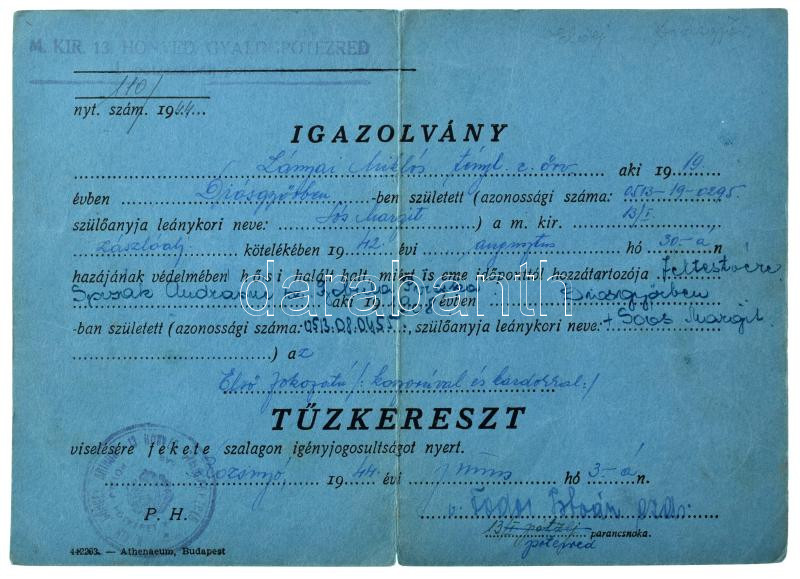 M. KIR. 13. HONVÉD GYALOGPÓTEZRED
110/
nyt. szám. 1944...
IGAZOLVÁNY
Lányai Miklós tényl. c. őrv aki 1919.
évben Diósgyőrben -ben született (azonossági száma: 0513-19-0295
szülőanyja leánykori neve: Sós Margit ) a m. kir. 13/I.
zászlóalj kötelékében 1942 évi augusztus hó 30-á n
hazájának védelmében hősi halált halt, miért is eme időponttól hozzátartozója féltestvére
aki 19 évben Diósgyőrben
-ban született (azonossági száma: 0513.08.0453.:, szülőanyja leánykori neve: + Soós Margit.
) az
Első fokozatú /: koszorúval és kardokkal :/
TŰZKERESZT
viselésére fekete szalagon igényjogosultságot nyert.
Rozsnyó, 1944 évi június hó 3-á n.
Fodor István ezds.
P. H.
13 pótezred parancsnoka.
442263. — Athenaeum, Budapest
darabanth